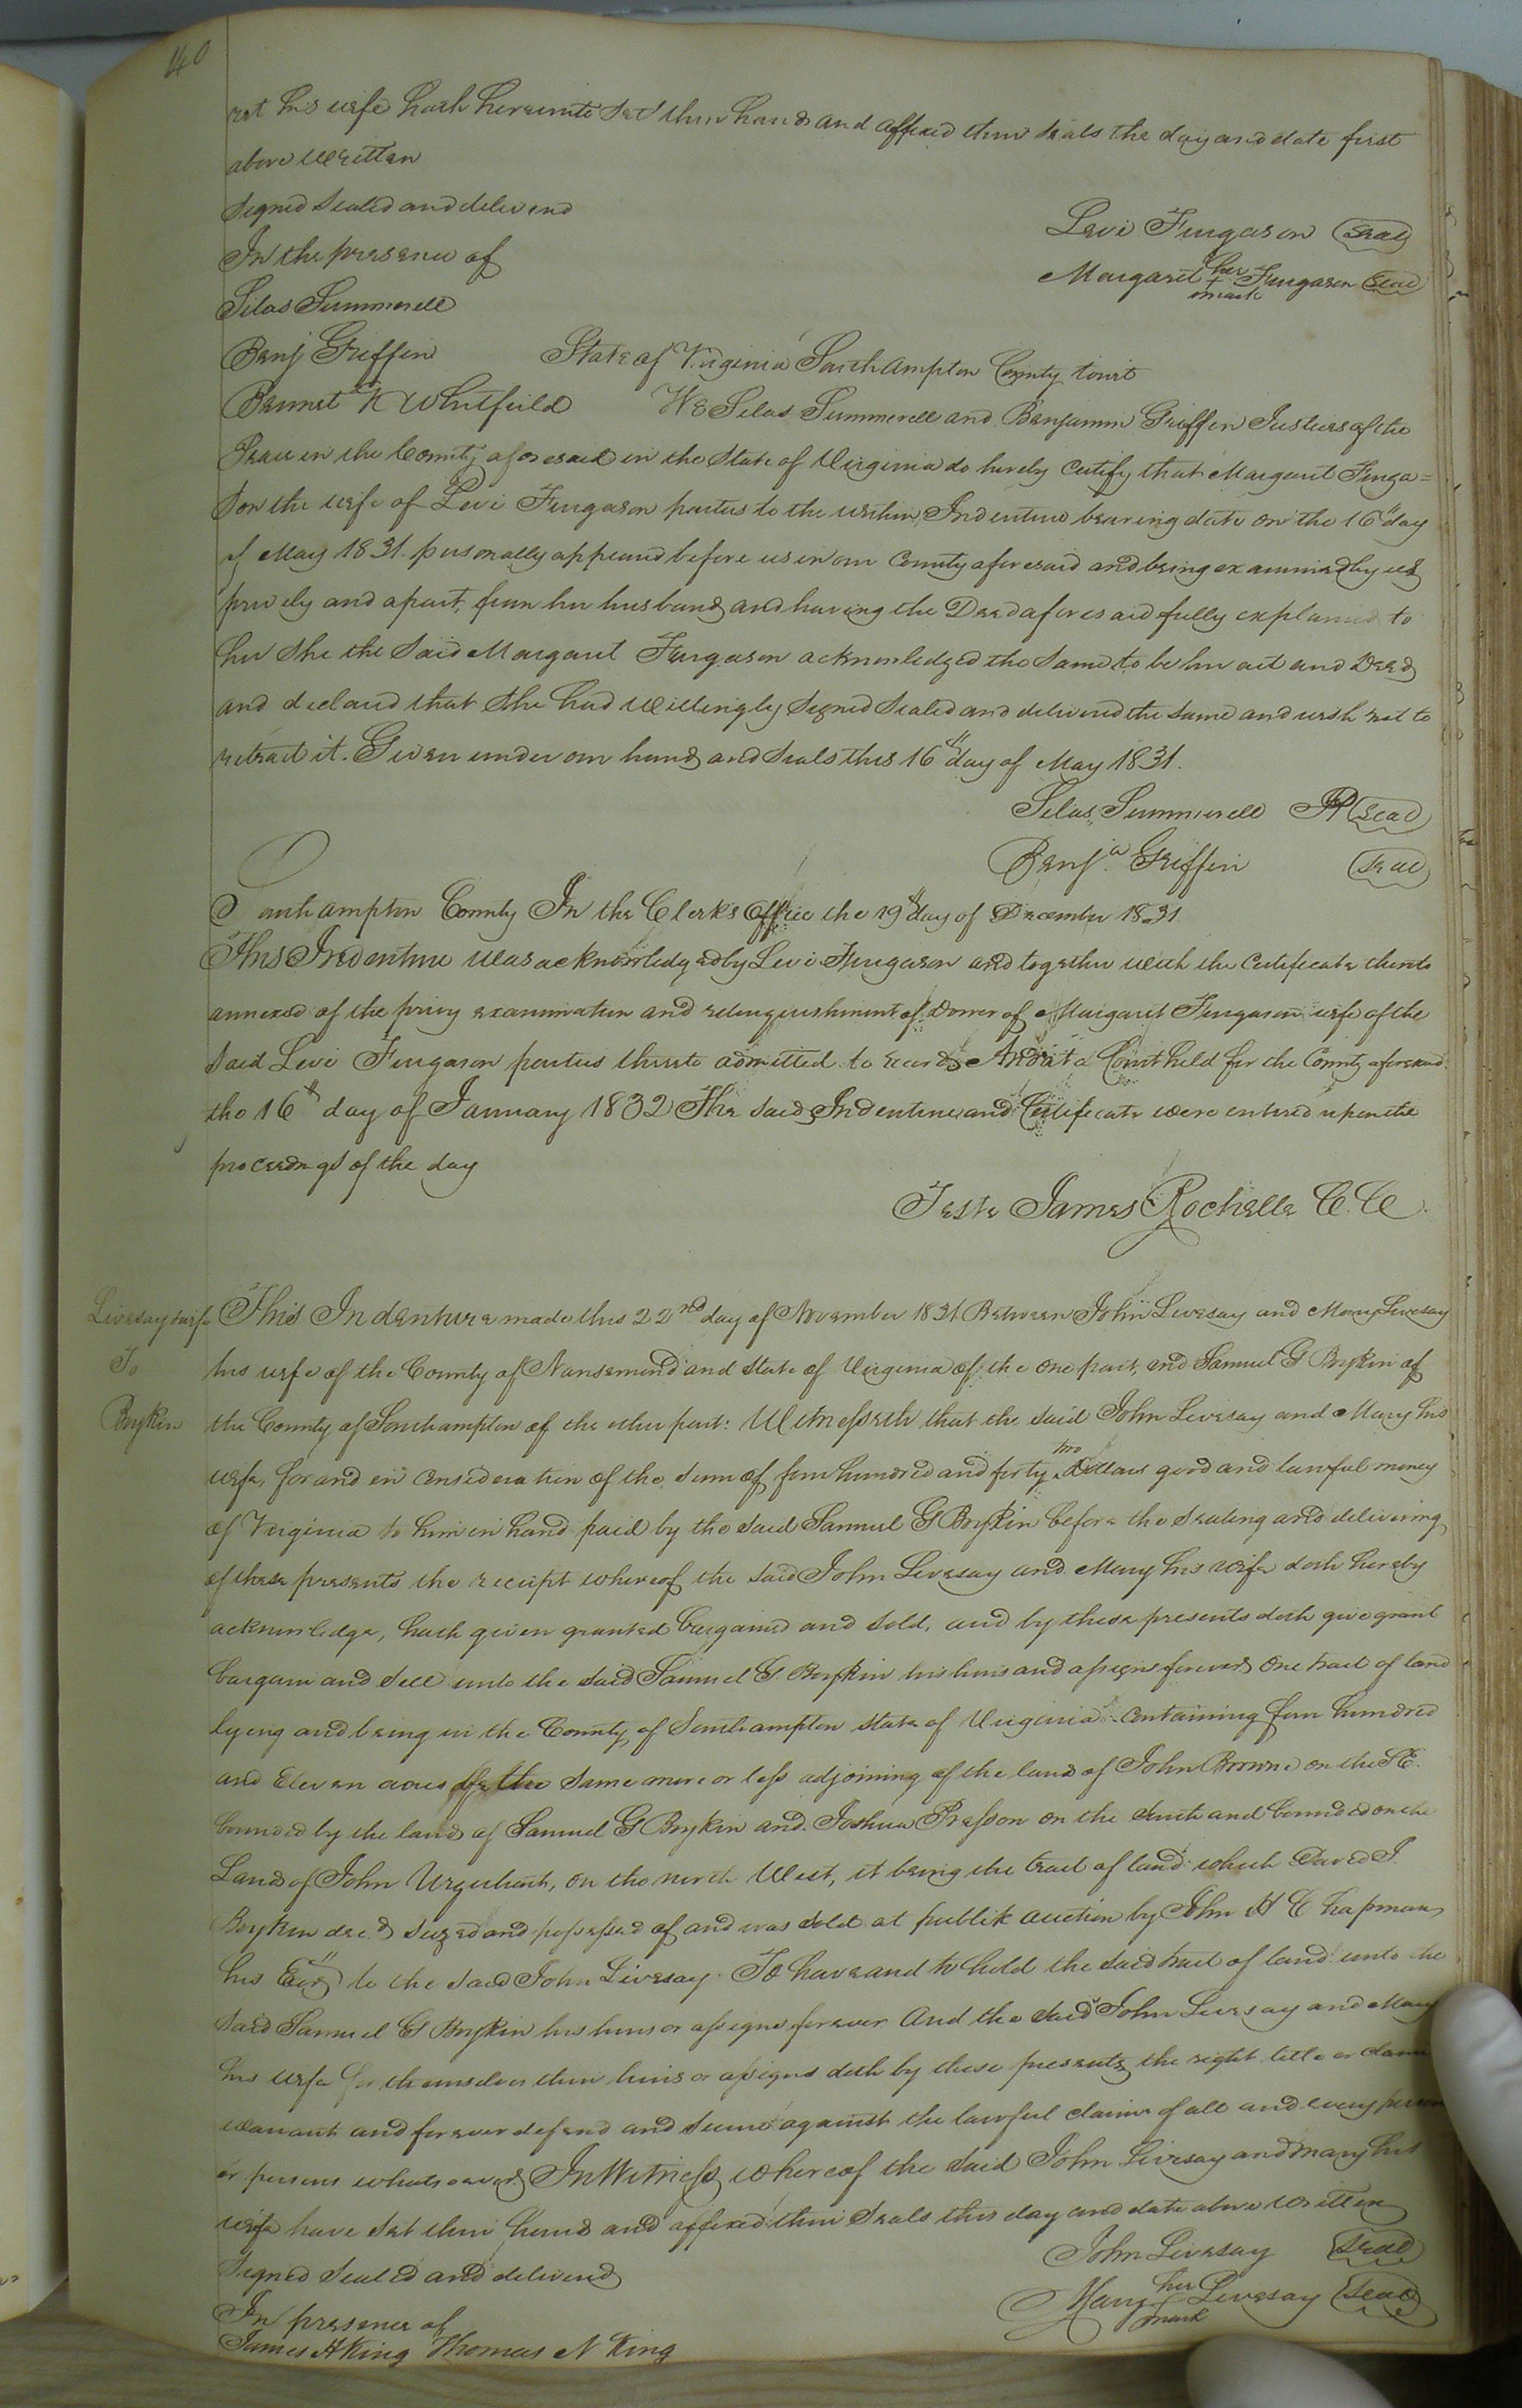 40
ret his wife hath hereunto set their hands and affixed their seals the day and date first
above written
Signed Sealed and delivered
In the presence of
Levi Fergason Seal
Margaret her + mark Fergason Seal
Silas Summerell
Benj Griffin
State of Virginia Southampton County towit
Bennet K Whitfield
We Silas Summerell and Benjamin Griffin Justices of the
Peace in the County aforesaid in the State of Virginia do hereby certify that Margaret Ferga=
son the wife of Levi Fergason parties to the within Indenture bearing date on the 16th day
of May 1831. personally appeared before us in our County aforesaid and being examined by us
privily and apart, from her husband and having the Deed aforesaid fully explained to
her she the said Margaret Fergason acknowledged the same to be her act and Deed
and declared that she had willingly Signed Sealed and delivered the same and wish not to
retract it. Given under our hand and Seals this 16th day of May 1831.
Silas Summerell Seal
Benja Griffin Seal
Southampton County In the Clerk's Office the 19th day of December 1831
This Indenture was acknowledged by Levi Fergason and together with the Certificate thereto
annexed of the privy examination and relinquishment of Dower of Margaret Fergason wife of the
said Levi Fergason parties thereto admitted to record And at a Court held for the County aforesaid
the 16th day of January 1832 The said Indenture and Certificate were entered upon the
proceedings of the day
Teste James Rochelle C.C.
Livesay & wife
To
Boykin
This Indenture made this 22nd day of November 1831 Between John Livesay and Mary Livesay
his wife of the County of Nansemond and State of Virginia of the one part, and Samuel G Boykin of
the County of Southampton of the other part: Witnesseth that the said John Livesay and Mary his
wife, for and in consideration of the sum of four hundred and forty two Dollars good and lawful money
of Virginia to him in hand paid by the said Samuel G Boykin before the sealing and delivering
of these presents the receipt whereof the said John Livesay and Mary his wife doth hereby
acknowledge, hath given granted bargained and sold, and by these presents doth give grant
bargain and sell unto the said Samuel G Boykin his heirs and assigns forever one tract of land
lying and being in the County of Southampton State of Virginia containing four hundred
and Eleven acres be the same more or less adjoining of the land of John Browne on the SE.
bounded by the land of Samuel G Boykin and Joshua Presson on the South and bounded on the
Land of John Urquhart, on the north West, it being the tract of land which David J.
Boykin decd seized and possessed of and was sold at publik auction by John H C hapman
his Exr to the said John Livesay. To have and to hold the said tract of land unto the
said Samuel G Boykin his heirs or assigns forever And the said John Livesay and Mary
his wife for themselves their heirs or assigns doth by these presents the right title or claim
warrant and forever defend and secure against the lawful claims of all and every person
or persons whatsoever In Witness whereof the said John Livesay and Mary his
wife have set their hands and affixed their Seals this day and date above written
Signed Sealed and delivered
In presence of
John Livesay Seal
Mary her + mark Livesay Seal
James H King Thomas N King